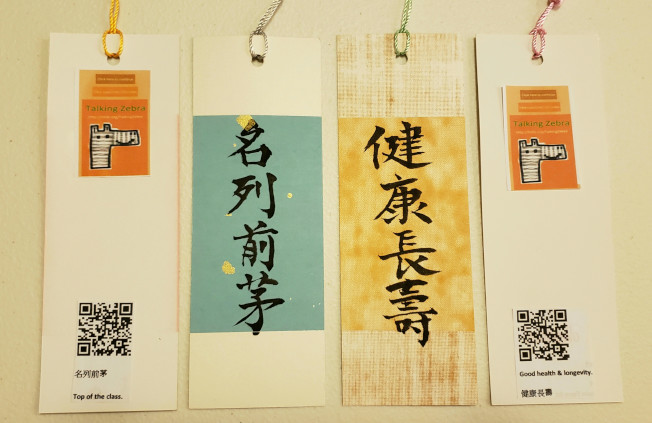 Talking Zebra
名列前茅
Top of the class.
名列前茅
健康長壽
Talking Zebra
Good health & longevity.
健康長壽